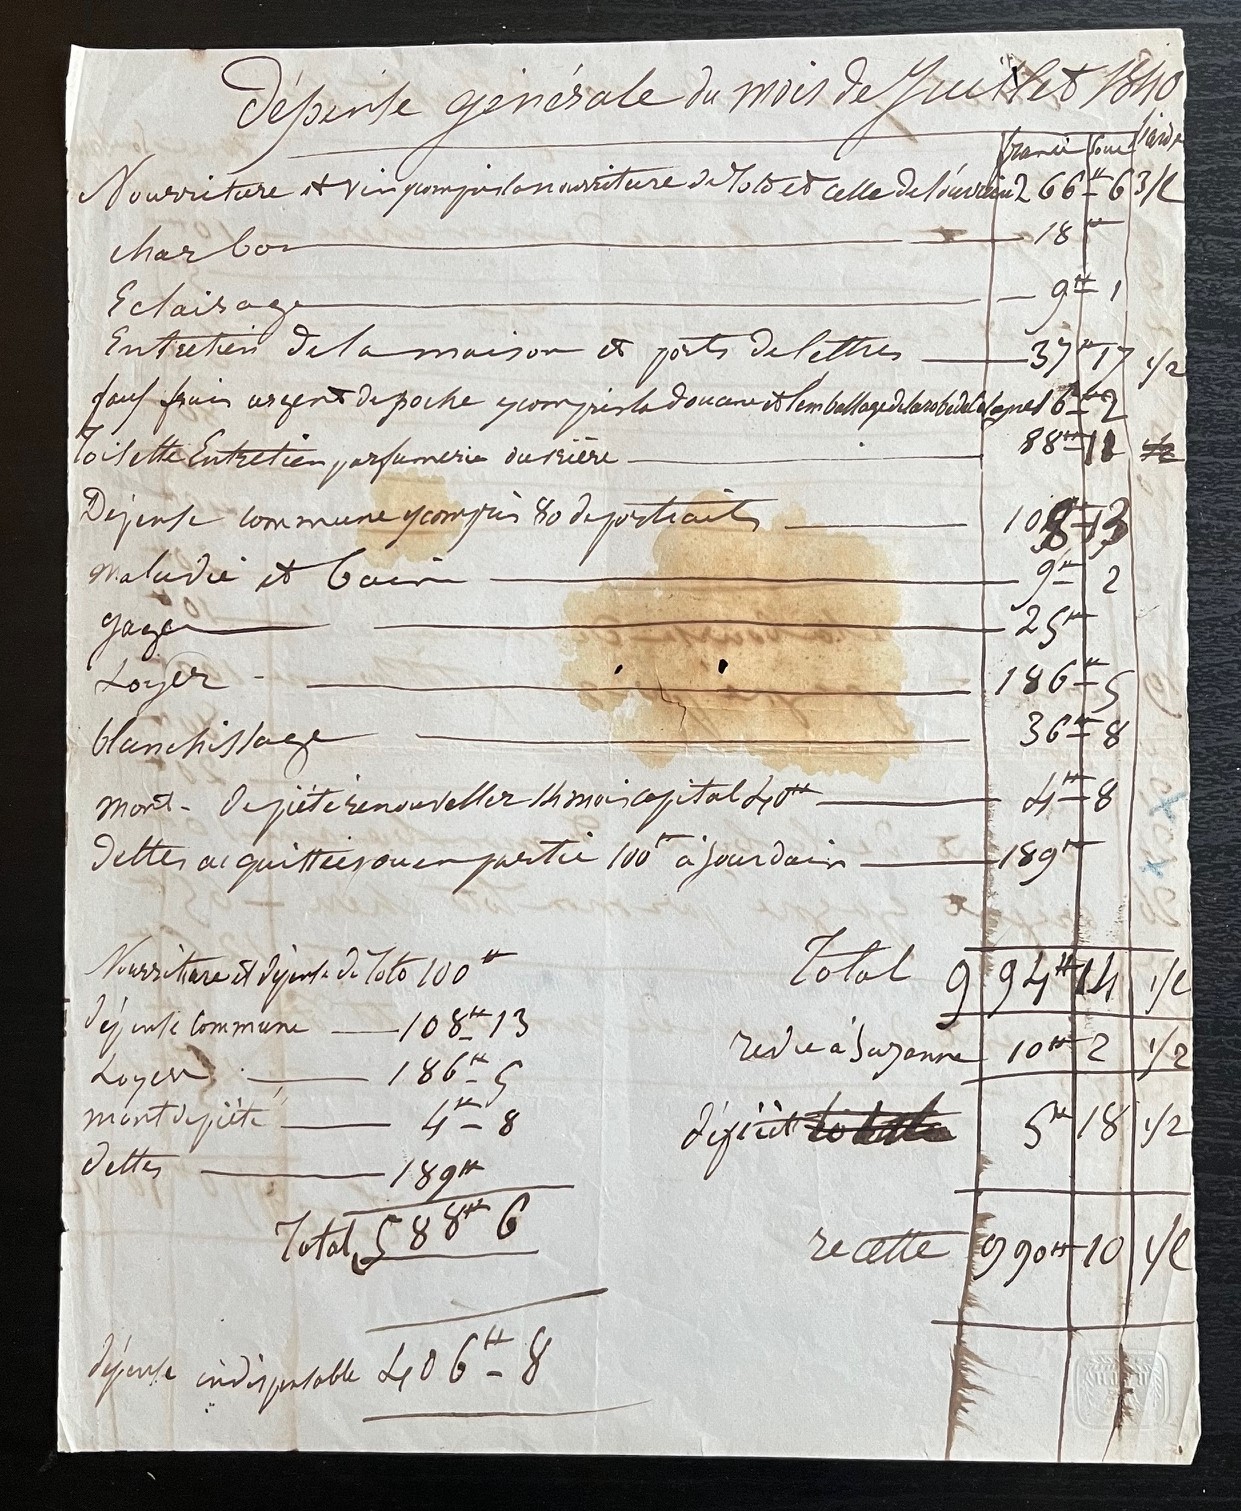 Dépense générale du mois de Juillet 1840
francs sous liards
Nourriture et vin y compris la nourriture de Toto et celle de l'ouvrière 266# 6 3/2
charbon 18#
Eclairage 9# 1
Entretien de la maison et ports de lettres 37# 17 1/2
faux frais argent de poche y compris la douane et l'emballage de la robe de 16# 2
Toilette Entretien parfumerie ouvrière 88# 11
Dépense commune y compris 80 de portraits 108# 13
Maladie et bain 9# 2
gage 25#
Loyer 186# 5
blanchissage 36# 8
mont-de piété renouveller 14 mois capital 40# 4# 8
Dettes acquittées ou en partie 100# à Jourdain 189#
Total 994# 14 1/2
redue à Suzanne 10# 2 1/2
dépicit 5# 18 1/2
recette 990# 10 1/2
Nourriture et dépense de Toto 100#
dépense commune 108# 13
Loyer 186# 5
mont de piété 4# 8
dettes 189#
Total 588# 6
dépense indispensable 406# 8